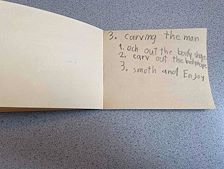 3. carving the man
1. och out the body shape
2. carv out the bodyshape
3. smoth and Enjoy